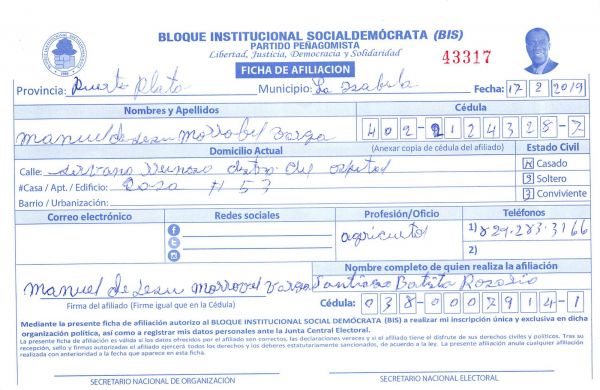 BLOQUE INSTITUCIONAL SOCIALDEMÓCRATA (BIS)
PARTIDO PEÑAGOMISTA
Libertad, Justicia, Democracia y Solidaridad
43317
FICHA DE AFILIACION
Provincia: Puerto Plata Municipio: La Isabela Fecha: 17 2 2019
Nombres y Apellidos Cédula
Manuel de Jesu Morrobel Varga 402-2124328-7
Domicilio Actual (Anexar copia de cédula del afiliado) Estado Civil
Calle: del
1 Casado
#Casa / Apt. / Edificio: Casa # 53
2 Soltero
Barrio / Urbanización:
3 Conviviente
Correo electrónico Redes sociales Profesión/Oficio Teléfonos
agricuctor 1) 829-283-3166
2)
Manuel de Jesu Morrovel Varga Santiago Batista Rosario
Nombre completo de quien realiza la afiliación
Firma del afiliado (Firme igual que en la Cédula) Cédula: 038-0007914-1
Mediante la presente ficha de afiliación autorizo al BLOQUE INSTITUCIONAL SOCIAL DEMÓCRATA (BIS) a realizar mi inscripción única y exclusiva en dicha
organización política, así como a registrar mis datos personales ante la Junta Central Electoral.
La presente ficha de afiliación es válida si los datos ofrecidos por el afiliado son correctos, las declaraciones veraces y si el afiliado tiene el disfrute de sus derechos civiles y políticos. Tras su
recepción, sello y firmas autorizadas el afiliado ejercerá todos los derechos y los deberes estatutariamente sancionados, de acuerdo a la ley. La presente afiliación anula cualquier afiliación
realizada con anterioridad a la fecha que aparece en esta ficha.
SECRETARIO NACIONAL DE ORGANIZACIÓN SECRETARIO NACIONAL ELECTORAL